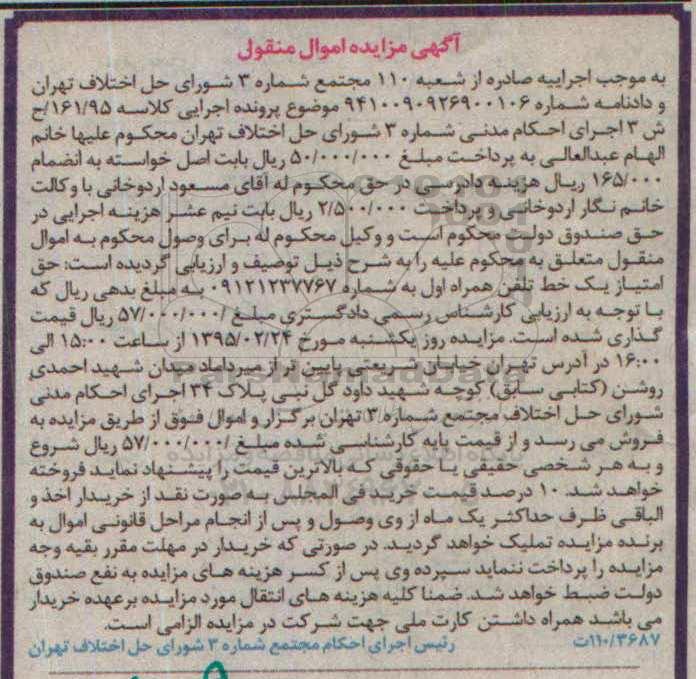 آگهی مزایده اموال منقول
به موجب اجراییه صادره از شعبه ۱۱۰ مجتمع شماره ۳ شورای حل اختلاف تهران
و دادنامه شماره ۹۴۱۰۰۹۰۹۲۶۹۰۰۱۰۶ موضوع پرونده اجرایی کلاسه ۱۶۱/۹۵/ح
ش ۳ اجرای احکام مدنی شماره ۳ شورای حل اختلاف تهران محکوم علیها خانم
الهام عبدالعالی به پرداخت مبلغ ۵۰/۰۰۰/۰۰۰ ریال بابت اصل خواسته به انضمام
۱۶۵/۰۰۰ ریال هزینه دادرسی در حق محکوم له آقای مسعود اردوخانی با وکالت
خانم نگار اردوخانی و پرداخت ۲/۵۰۰/۰۰۰ ریال بابت نیم عشر هزینه اجرایی در
حق صندوق دولت محکوم است و وکیل محکوم له برای وصول محکوم به اموال
منقول متعلق به محکوم علیه را به شرح ذیل توصیف و ارزیابی گردیده است: حق
امتیاز یک خط تلفن همراه اول به شماره ۰۹۱۲۱۲۳۷۷۶۷ به مبلغ بدهی ریال که
با توجه به ارزیابی کارشناس رسمی دادگستری مبلغ /۵۷/۰۰۰/۰۰۰ ریال قیمت
گذاری شده است. مزایده روز یکشنبه مورخ ۱۳۹۵/۰۲/۲۴ از ساعت ۱۵:۰۰ الی
۱۶:۰۰ در آدرس تهران خیابان شریعتی پایین تر از میرداماد میدان شهید احمدی
روشن (کتابی سابق) کوچه شهید داود گل نبی پلاک ۳۴ اجرای احکام مدنی
شورای حل اختلاف مجتمع شماره ۳ تهران برگزار و اموال فوق از طریق مزایده به
فروش می رسد و از قیمت پایه کارشناسی شده مبلغ /۵۷/۰۰۰/۰۰۰ ریال شروع
و به هر شخصی حقیقی یا حقوقی که بالاترین قیمت را پیشنهاد نماید فروخته
خواهد شد. ۱۰ درصد قیمت خرید فی المجلس به صورت نقد از خریدار اخذ و
الباقی ظرف حداکثر یک ماه از وی وصول و پس از انجام مراحل قانونی اموال به
برنده مزایده تملیک خواهد گردید. در صورتی که خریدار در مهلت مقرر بقیه وجه
مزایده را پرداخت ننماید سپرده وی پس از کسر هزینه های مزایده به نفع صندوق
دولت ضبط خواهد شد. ضمنا کلیه هزینه های انتقال مورد مزایده برعهده خریدار
می باشد همراه داشتن کارت ملی جهت شرکت در مزایده الزامی است.
۱۱۰/۳۶۸۷ت رئیس اجرای احکام مجتمع شماره ۳ شورای حل اختلاف تهران